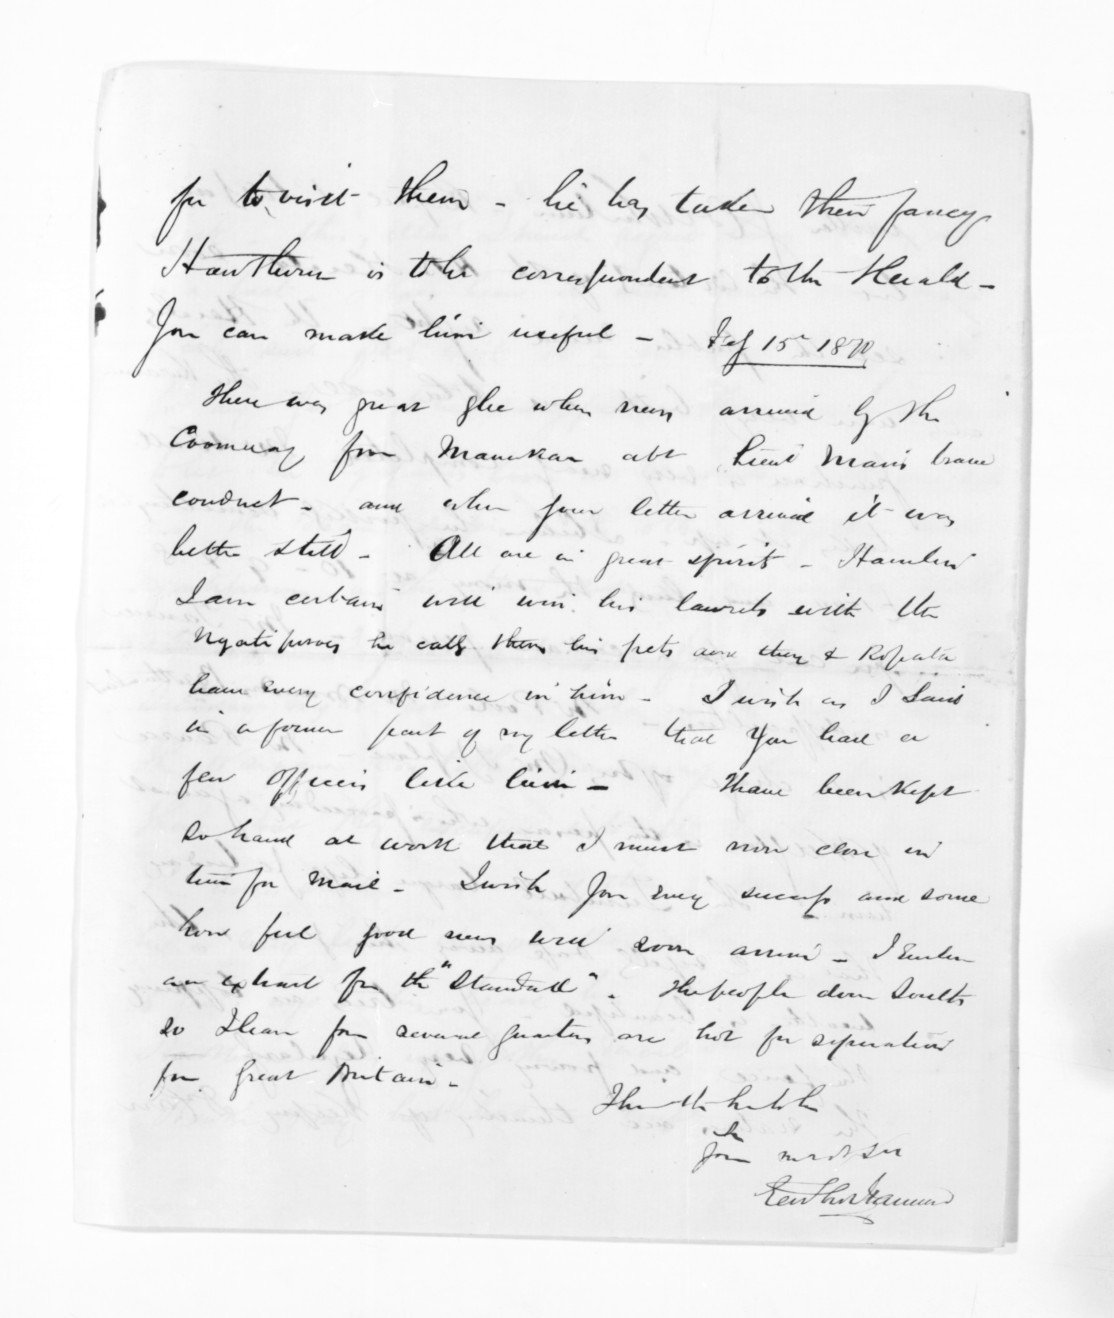 for to visit them - he has taken their fancy
Hawthorn is to be correspondent to the Herald -
You can make him useful - Feb 15 1870,
There was great glee when news arrived by the
from abt Lieut Mair's brave
conduct - and when your letter arrived it was
better still - All are in great spirits - Hamlin
I am certain will win his laurels with the
Ngatiporou he calls them his pets and they & Ropata
have every confidence in him - I wish as I said
in a former part of my letter that you had a
few officers like him - I have been kept
so hard at work that I must now close in
time for mail - I wish you every success and some
how feel good news will soon arrive - I
an extract from the "Standard" - The people down South
so I hear from several quarters are hot for separation
from Great Britain -

Your